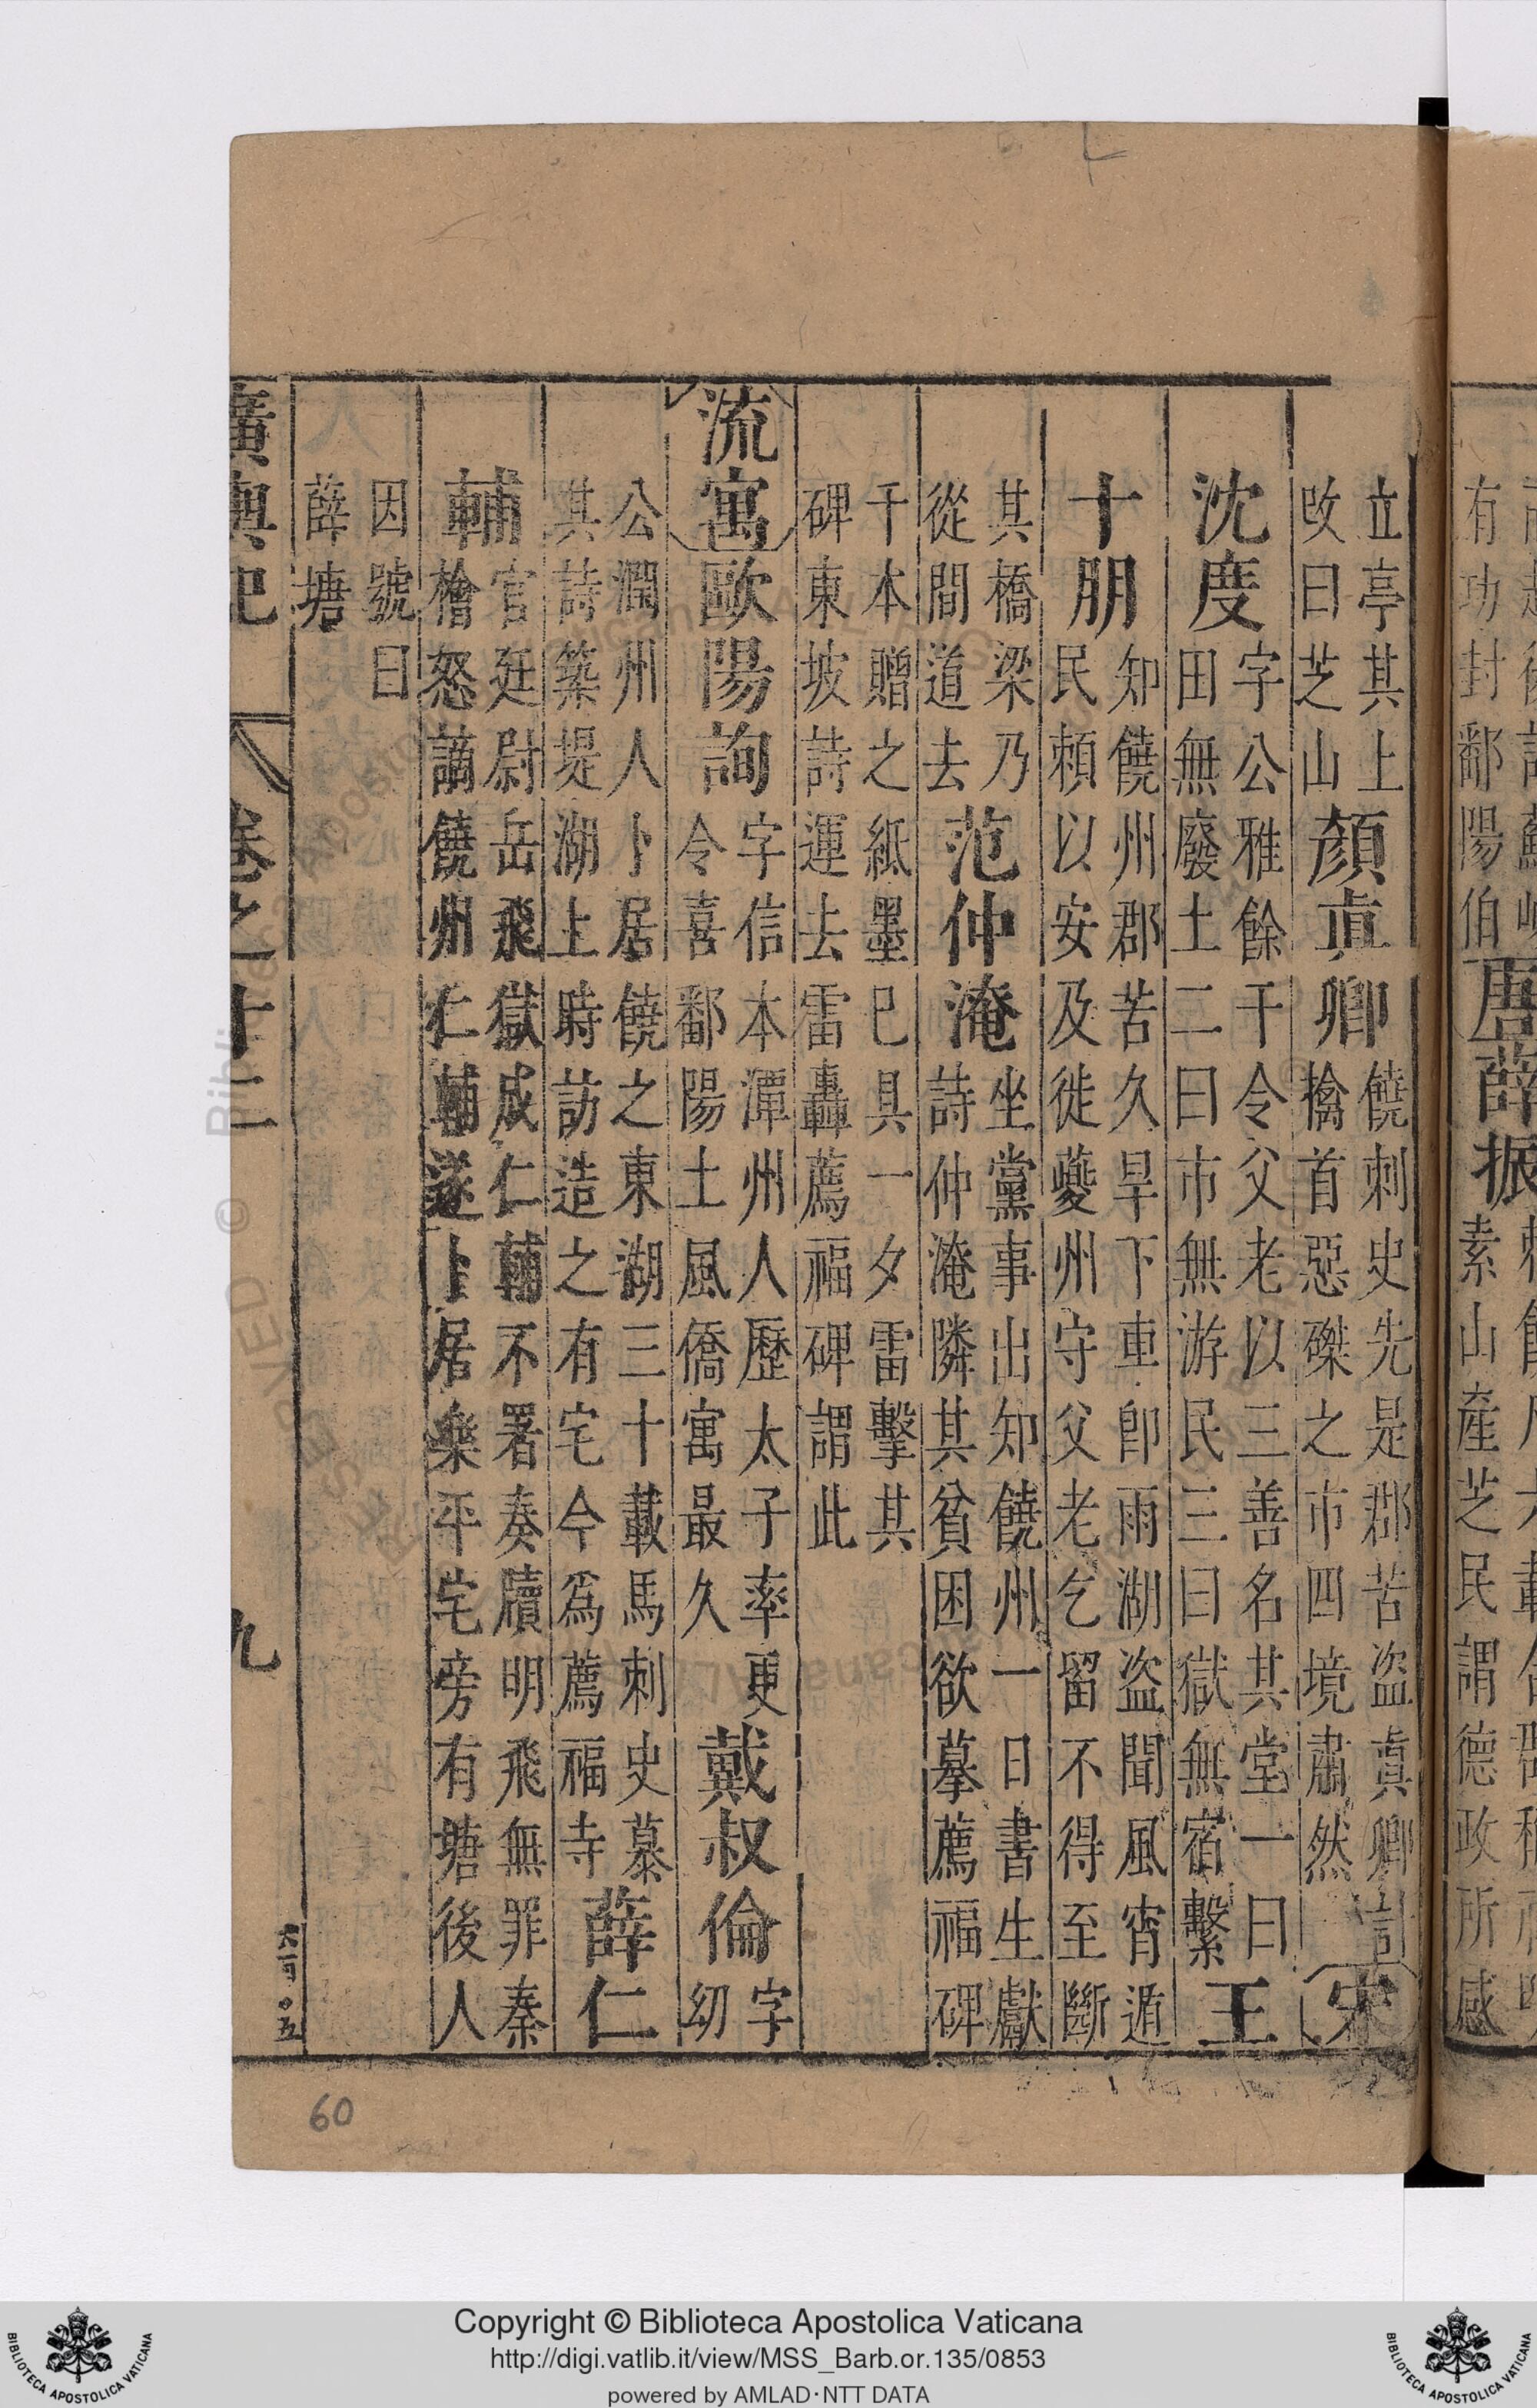 有功封鄱陽伯
唐薛振
素山產芝民謂德政所感
立亭其上
改曰芝山
顏眞卿
饒刺史先是郡苦盜眞卿
擒首惡磔之市四境肅然
宋
沈度
字公雅餘干令父老以三善名其堂一曰
田無廢土二曰市無游民三曰獄無宿繫
王
十朋
知饒州郡苦久旱下車卽雨湖盜聞風宵遁
民賴以安及徙夔州守父老乞留不得至斷
其橋梁乃
從間道去
范仲淹
坐黨事出知饒州一日書生獻
詩仲淹隣其貧困欲摹薦福碑
千本贈之紙墨已具一夕雷擊其
碑東坡詩運去雷轟薦福碑謂此
流寓
歐陽詢
字信本潭州人歷太子率更
令喜鄱陽土風僑寓最久
戴叔倫
字
幼
公潤州人卜居饒之東湖三十載馬刺史慕
其詩築堤湖上時訪造之有宅今爲薦福寺
薛仁
輔
官廷尉岳飛獄成仁輔不署奏牘明飛無罪秦
檜怒謫饒州仁輔遂卜居樂平宅旁有塘後人
因號曰
薛塘
廣輿記
卷之十二
九
60
Copyright © Biblioteca Apostolica Vaticana
http://digi.vatlib.it/view/MSS_Barb.or.135/0853
powered by AMLAD·NTT DATA
BIBLIOTECA APOSTOLICA VATICANA
BIBLIOTECA APOSTOLICA VATICANA